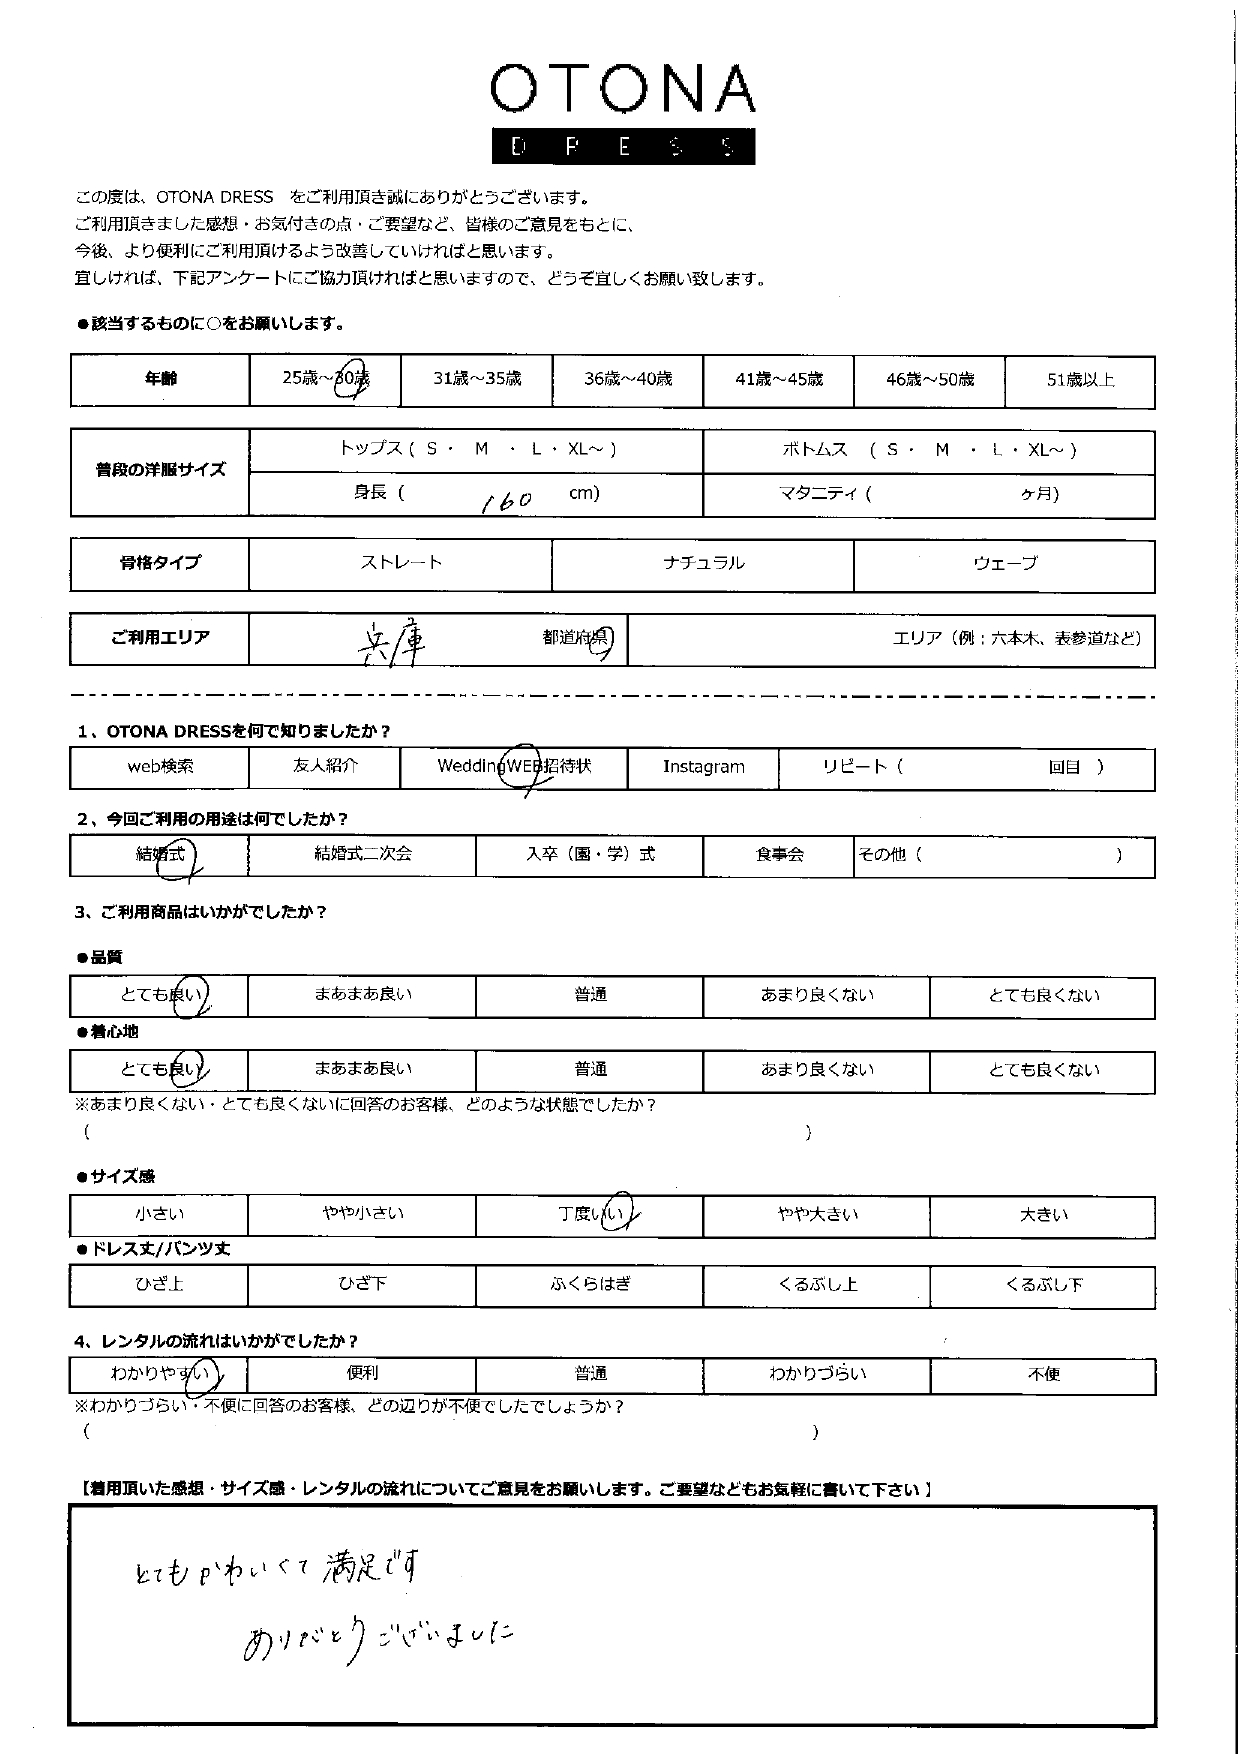 OTONA
DRESS
この度は、OTONA DRESS をご利用頂き誠にありがとうございます。
ご利用頂きました感想・お気付きの点・ご要望など、皆様のご意見をもとに、
今後、より便利にご利用頂けるよう改善していければと思います。
宜しければ、下記アンケートにご協力頂ければと思いますので、どうぞ宜しくお願い致します。
●該当するものに○をお願いします。
年齢 25歳～30歳 31歳～35歳 36歳～40歳 41歳～45歳 46歳～50歳 51歳以上
普段の洋服サイズ トップス ( S ・ M ・ L ・ XL～ ) ボトムス ( S ・ M ・ L ・ XL～ )
身長 ( 160 cm) マタニティ ( ヶ月)
骨格タイプ ストレート ナチュラル ウェーブ
ご利用エリア 兵庫 都道府県 エリア（例：六本木、表参道など）
1、OTONA DRESSを何で知りましたか？
web検索 友人紹介 WeddingWEB招待状 Instagram リピート（ 回目 ）
2、今回ご利用の用途は何でしたか？
結婚式 結婚式二次会 入卒（園・学）式 食事会 その他（ ）
3、ご利用商品はいかがでしたか？
●品質
とても良い まあまあ良い 普通 あまり良くない とても良くない
●着心地
とても良い まあまあ良い 普通 あまり良くない とても良くない
※あまり良くない・とても良くないに回答のお客様、どのような状態でしたか？
（ ）
●サイズ感
小さい やや小さい 丁度いい やや大きい 大きい
●ドレス丈/パンツ丈
ひざ上 ひざ下 ふくらはぎ くるぶし上 くるぶし下
4、レンタルの流れはいかがでしたか？
わかりやすい 便利 普通 わかりづらい 不便
※わかりづらい・不便に回答のお客様、どの辺りが不便でしたでしょうか？
（ ）
【着用頂いた感想・サイズ感・レンタルの流れについてご意見をお願いします。ご要望などもお気軽に書いて下さい】
とてもかわいくて満足です
ありがとうございました